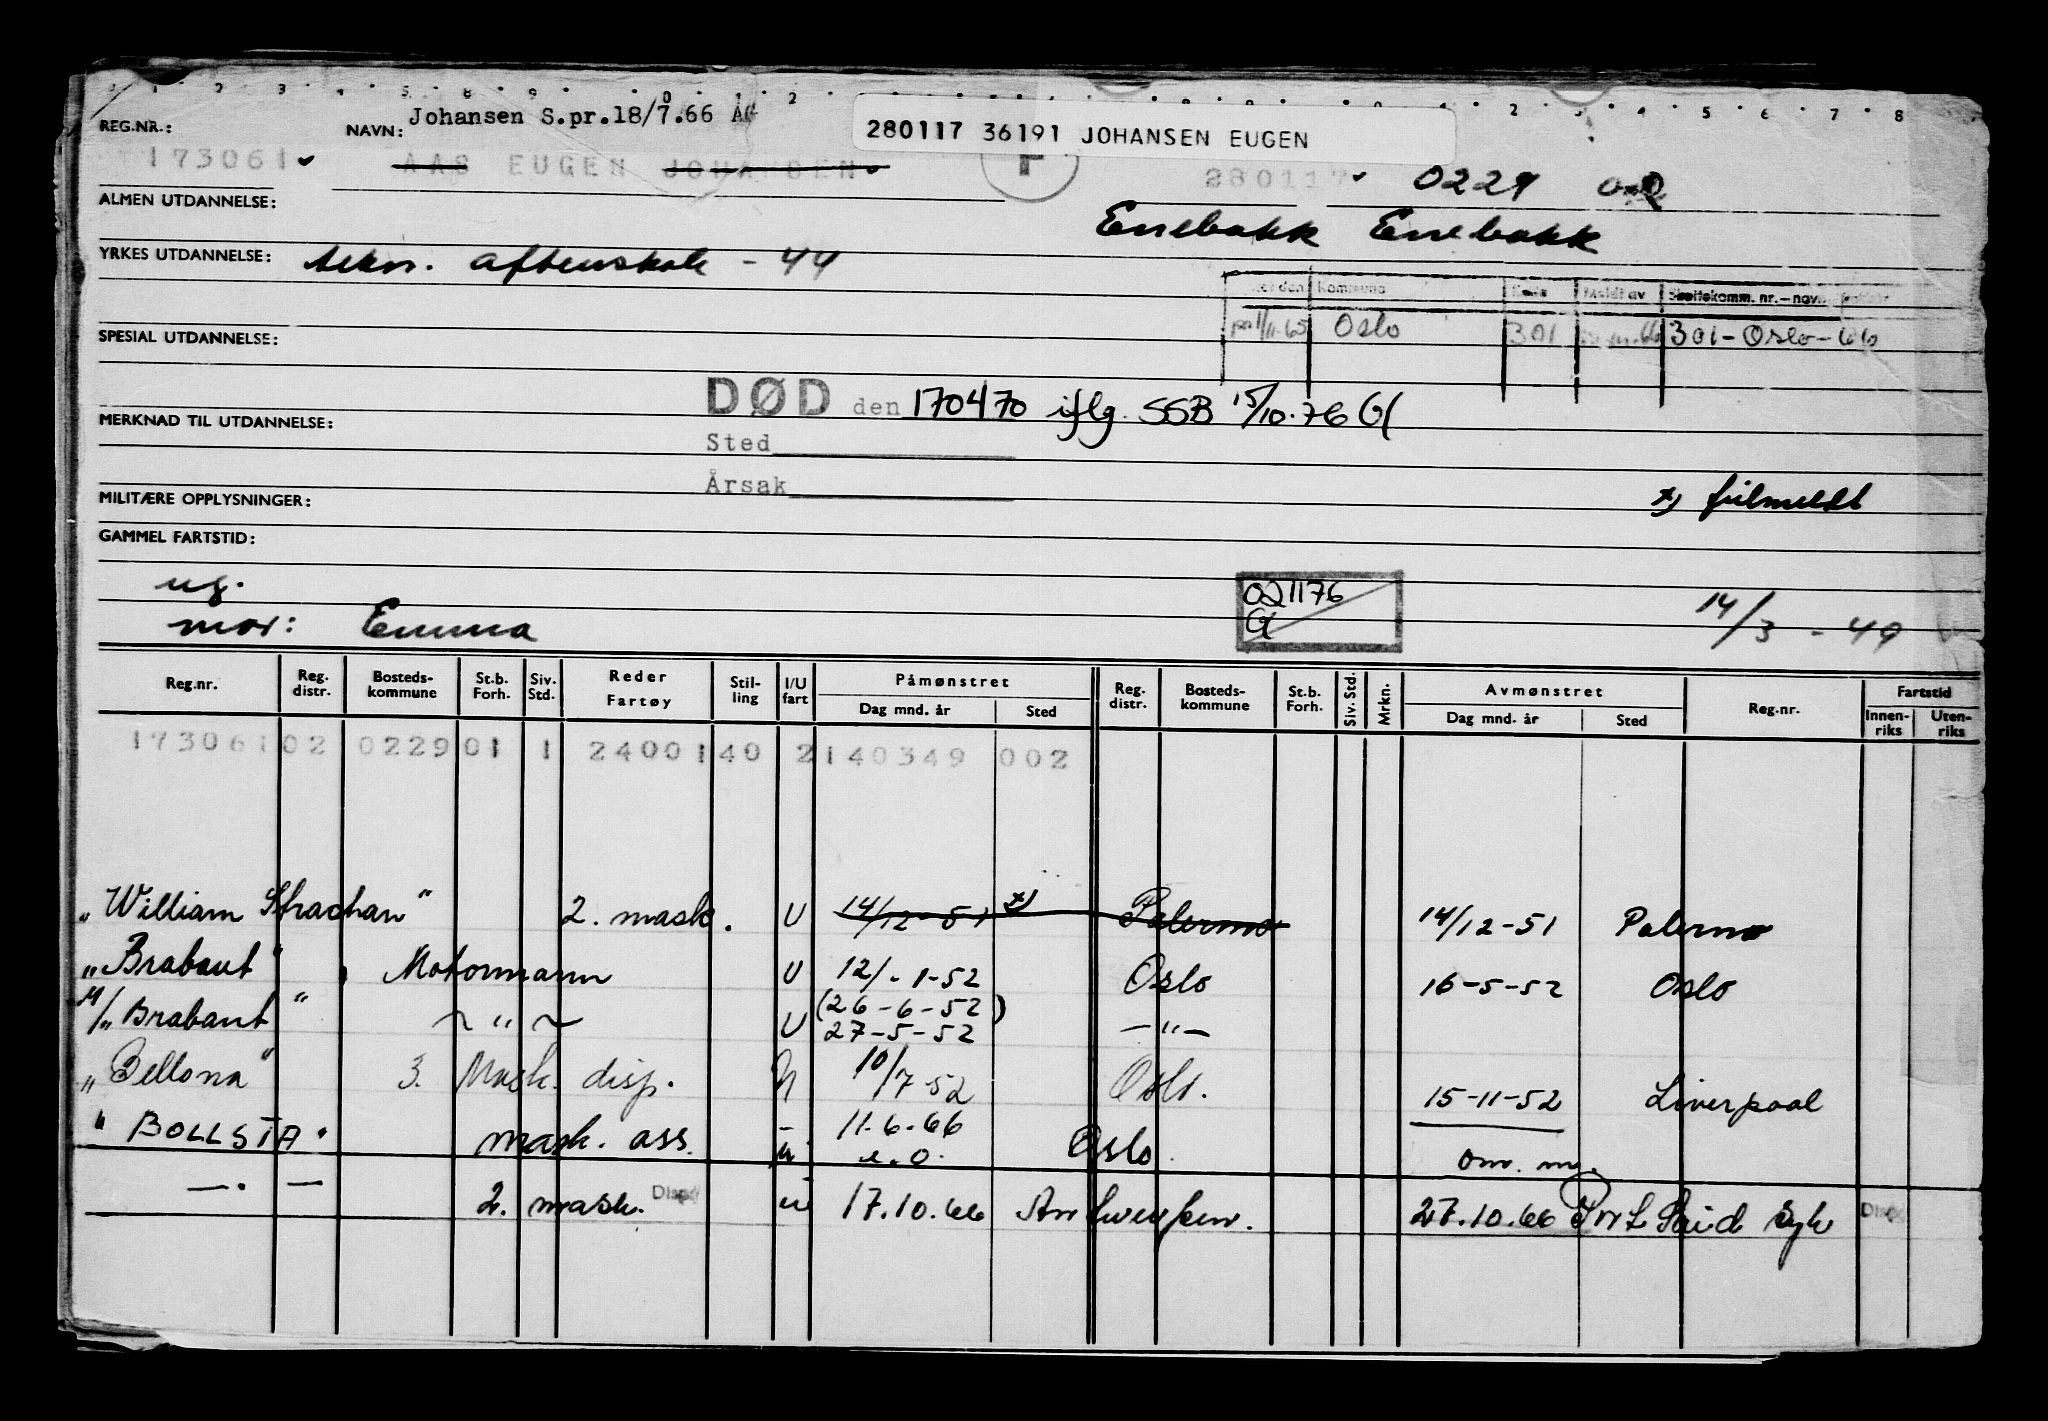 Johansen S.pr.18/7.66 ÅG
280117 36191 JOHANSEN EUGEN
REG.NR.: NAVN:
173061 AAS EUGEN JOHANSEN 280117 0229
ALMEN UTDANNELSE:
Enebakk Enebakk
YRKES UTDANNELSE: tekn. aftenskole - 44
Kommune Meldt av Skattekomm. nr. – navn
1/11-65 Oslo 301 301 - Oslo - 66
SPESIAL UTDANNELSE:
DØD den 170470 iflg. SSB 15/10.76 G
MERKNAD TIL UTDANNELSE:
Sted
Årsak
MILITÆRE OPPLYSNINGER:
x) feilmeldt
GAMMEL FARTSTID:
ug.
021176
G
14/3 - 49
mor: Emma
Reg.nr. Reg. distr. Bosteds-kommune St.b. Forh. Siv. Std. Reder Fartøy Stil-ling I/U fart Påmønstret Dag mnd. år Sted Reg. distr. Bosteds-kommune St.b. Forh. Siv. Std. Mrkn. Avmønstret Dag mnd. år Sted Reg.nr. Fartstid Innen-riks Uten-riks
173061 02 0229 01 1 24001 40 2 140349 002
"William Strachan" 2. mask. U 14/12-51 x) Palermo 14/12-51 Palermo
"Brabant" Motormann U 12/-1-52 Oslo 16-5-52 Oslo
(26-6-52)
M/"Brabant" ~ " ~ U 27-5-52 — " —
"Bellona" 3. Mask. disp. 10/7-52 Oslo. 15-11-52 Liverpool
"BOLLSTA" mask. ass. u 11.6.66 Oslo. om. m.
e.o.
—. — 2. mask. Disp. u 17.10.66 Antwerpen. 27.10.66 Port Said syk Disp